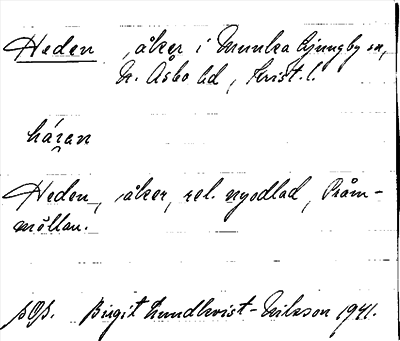 Heden, åker i Munka Ljungby sn,
N. Åsbo hd, Krist. l.
háran
Heden, åker, rel. nyodlad, Pråm-
möllan.
Birgit Lundkvist-Eriksson 1941.